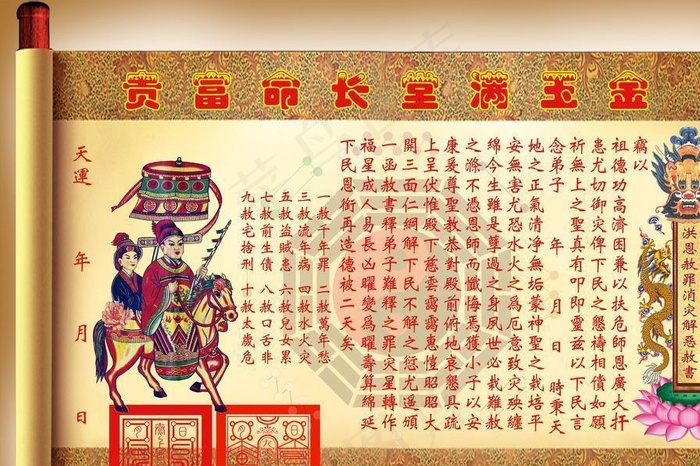 金玉满堂长命富贵
洪恩赦罪消灾解恶赦書
竊以
祖德功高濟困兼以扶危師恩廣大扞
患尤切御灾俾下民之懇禱相償如願
祈無上之聖真有叩即靈兹以下民言
念弟子 年 月 日 時秉天
地之正氣清净無垢蒙神聖之栽培平
安無害尤恐水火之為厄意致灾殃纏
綿今生雖是孽過之身夙世必難赦
之滌不憑恩師而懺悔焉獲小子以安
康爰尊聖教恭對殿前俯地哀懇具疏
上呈伏惟殿下慈雲靄靄恵愷昭昭大
開三面仁網解下民不解之愆尤遥頒
一函赦書釋弟子難釋之罪灾星轉作
福星成人易長凶曜變爲曜壽算綿延
下民恩銜再造德被二天矣
一赦千年罪 二赦萬年愁
三赦流年病 四赦水火灾
五赦盗賊患 六赦兒女累
七赦前生債 八赦口舌非
九赦宅捨刑 十赦太歲危
天運 年 月 日